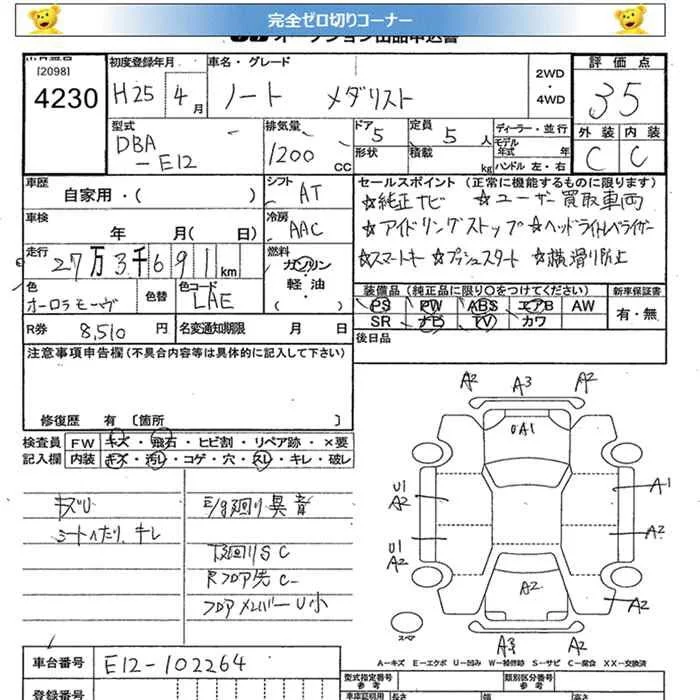 完全ゼロ切りコーナー
[2098]
4230
初度登録年月
H25 4月
車名・グレード
ノート メダリスト
2WD
・
4WD
評価点
3.5
外装 内装
C C
型式
DBA
-E12
排気量
1200
CC
ドア
5
形状
定員
5人
積載
kg
ディーラー・並行
モデル
年式 年
ハンドル 左・右
車歴
自家用・( )
シフト
AT
車検
年 月( 日)
冷房
AAC
走行
27万3千691km
燃料
ガソリン
・
軽油
色
オーロラモーヴ
色替
色コード
LAE
R券
8,510円
名変通知期限 月 日
セールスポイント (正常に機能するものに限ります)
☆純正ナビ ☆ユーザー買取車両
☆アイドリングストップ ☆ヘッドライトレベライザー
☆スマートキー ☆プッシュスタート ☆横滑り防止
装備品(純正品に限り○をつけてください)
PS PW ABS エアB AW
SR ナビ TV カワ
新車保証書
有・無
後日品
注意事項申告欄(不具合内容等は具体的に記入して下さい)
修復歴 有 〔箇所 〕
検査員 FW キズ・飛石・ヒビ割・リペア跡・×要
記入欄 内装 キズ・汚レ・コゲ・穴・スレ・キレ・破レ
キズU
シートヘたり、キレ
E/g廻り異音
下廻りSC
Rフロア先C-
フロアメンバーU小
A2 A3 A2
UA1
U1
A2
A1
U1
A2
A2
A2
A2
A3 A2
スペア
A-キズ E-エクボ U-凹み W-補修跡 S-サビ C-腐食 XX-交換済
車台番号
E12-102264
登録番号
型式指定番号
参考
類別区分番号
参考
長さ
幅
高さ